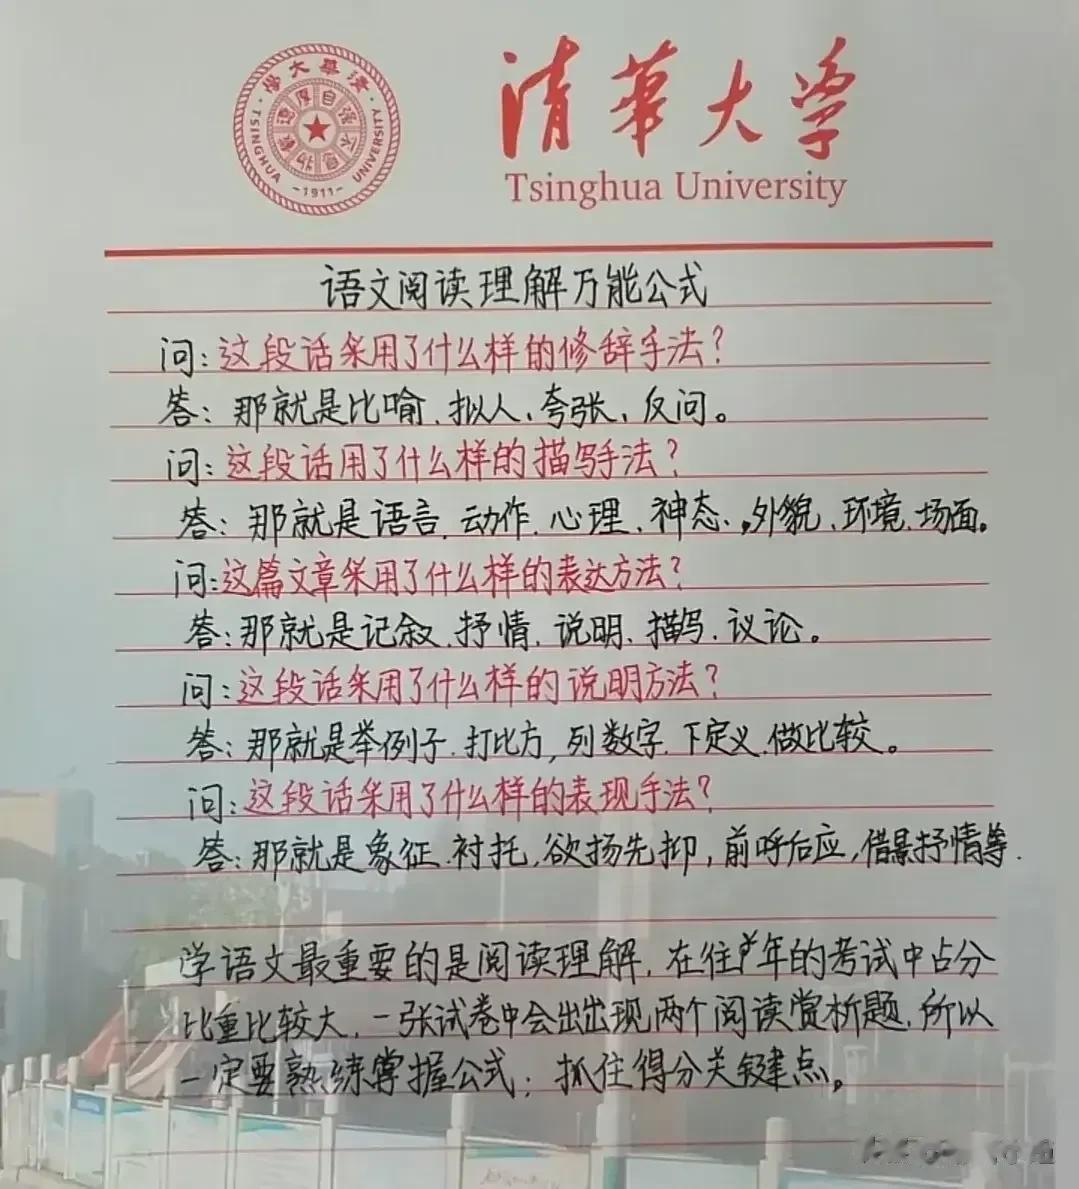 清華大学
Tsinghua University
學大華清
TSINGHUA UNIVERSITY
自强不息
厚德載物
1911
语文阅读理解万能公式
问:这段话采用了什么样的修辞手法?
答:那就是比喻、拟人、夸张、反问。
问:这段话用了什么样的描写手法?
答:那就是语言、动作、心理、神态、外貌、环境、场面。
问:这篇文章采用了什么样的表达方法?
答:那就是记叙、抒情、说明、描写、议论。
问:这段话采用了什么样的说明方法?
答:那就是举例子、打比方,列数字、下定义、做比较。
问:这段话采用了什么样的表现手法?
答:那就是象征、衬托、欲扬先抑,前呼后应,借景抒情等.
学语文最重要的是阅读理解,在往年的考试中占分
比重比较大,一张试卷中会出出现两个阅读赏析题,所以
一定要熟练掌握公式;抓住得分关键点。